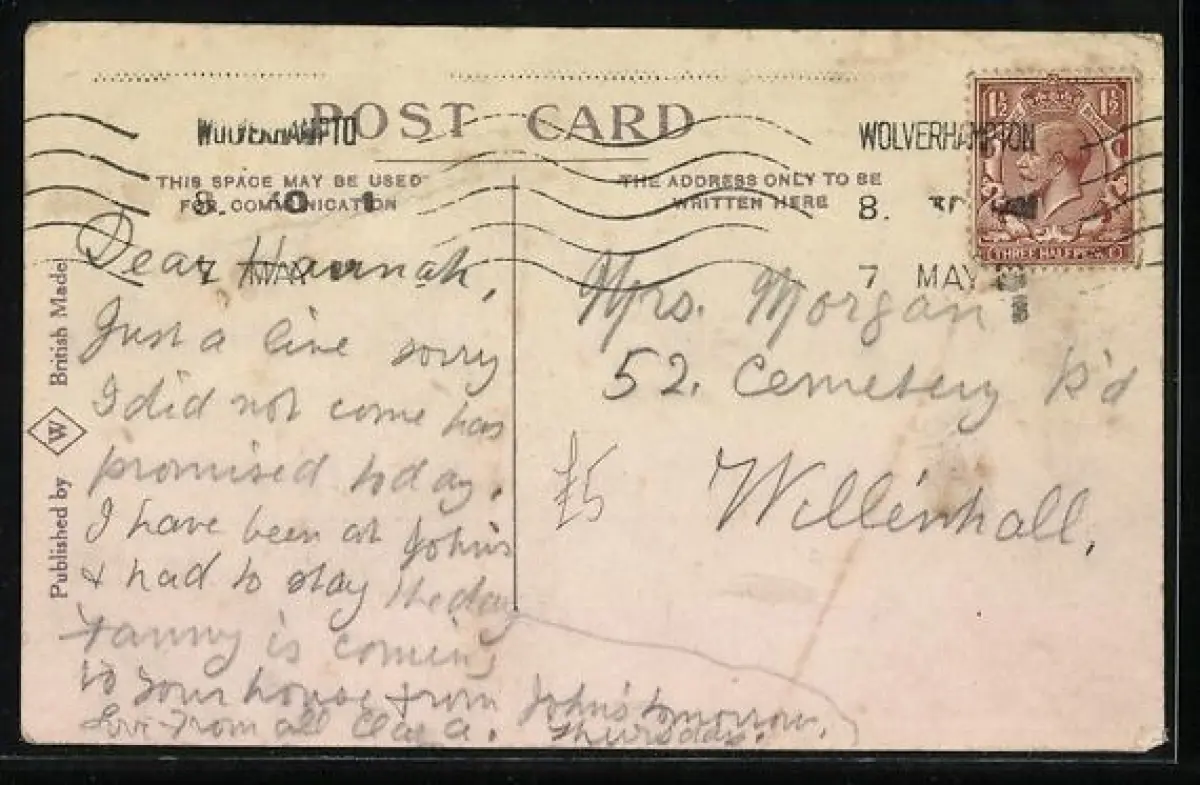 POST CARD
WOLVERHAMPTO
WOLVERHAMPTON
THIS SPACE MAY BE USED
FOR COMMUNICATION
THE ADDRESS ONLY TO BE
WRITTEN HERE
8.
8.
7 MAY
1½ 1½
THREE HALFPENCE
Published by W British Made
Dear Hannah,
Just a line sorry
I did not come has
promised today.
I have been at John's
& had to stay the day
Fanny is coming
to your house from John's tomorrow,
Love from all Clara. Thursday.
Mrs. Morgan
52. Cemetery R'd
Willenhall,
£5